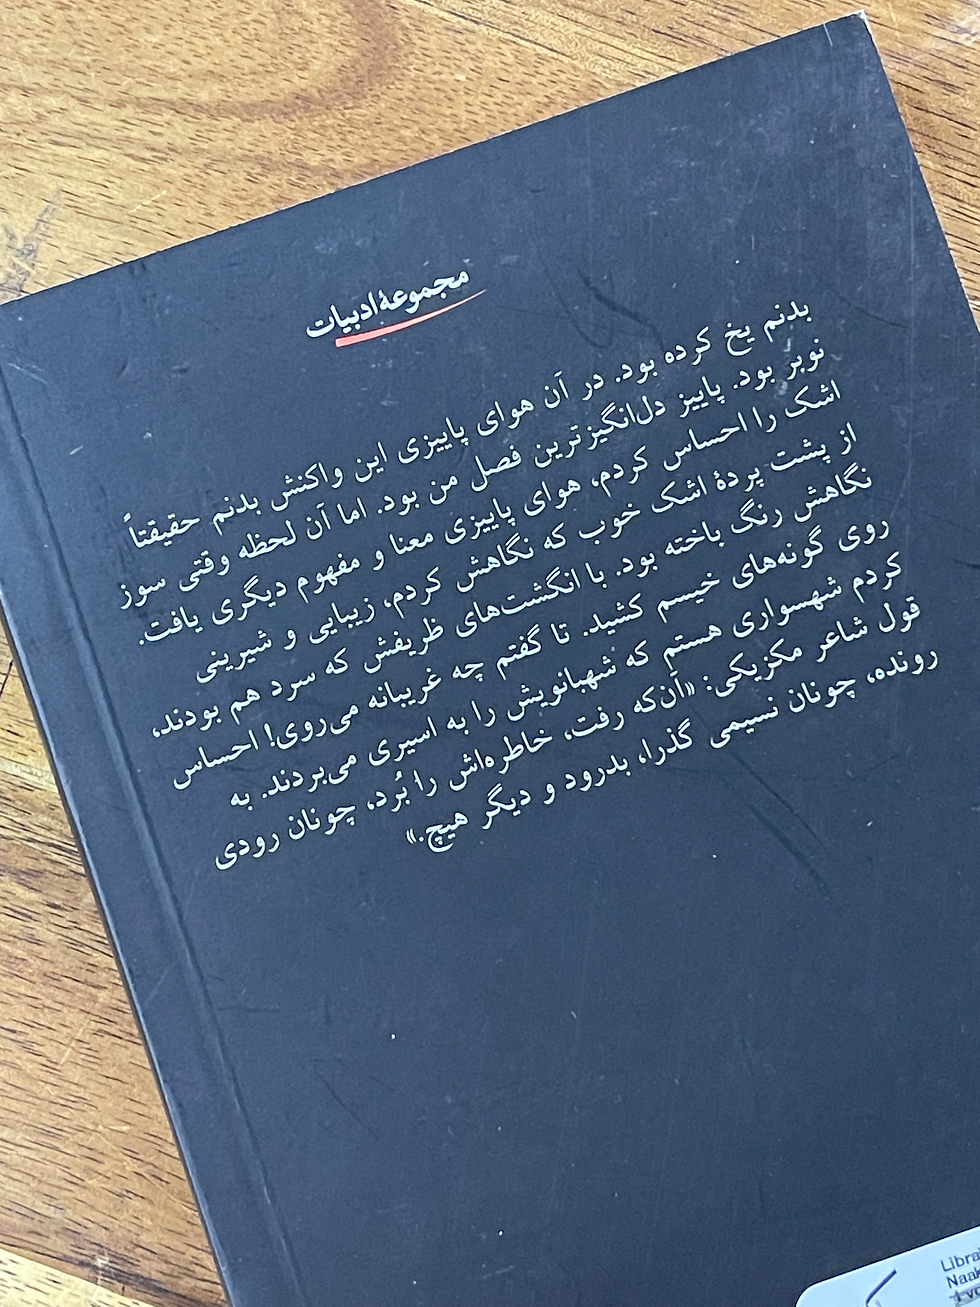 مجموعهٔ ادبیات
بدنم یخ کرده بود. در آن هوای پاییزی این واکنش بدنم حقیقتاً
نوبر بود. پاییز دل‌انگیزترین فصل من بود. اما آن لحظه وقتی سوز
اشک را احساس کردم، هوای پاییزی معنا و مفهوم دیگری یافت.
از پشت پردهٔ اشک خوب که نگاهش کردم، زیبایی و شیرینی
نگاهش رنگ باخته بود. با انگشت‌های ظریفش که سرد هم بودند،
روی گونه‌های خیسم کشید. تا گفتم چه غریبانه می‌روی! احساس
کردم شهسواری هستم که شهبانویش را به اسیری می‌بردند. به
قول شاعر مکزیکی: «آن‌که رفت، خاطره‌اش را بُرد، چونان رودی
رونده، چونان نسیمی گذرا، بدرود و دیگر هیچ.»